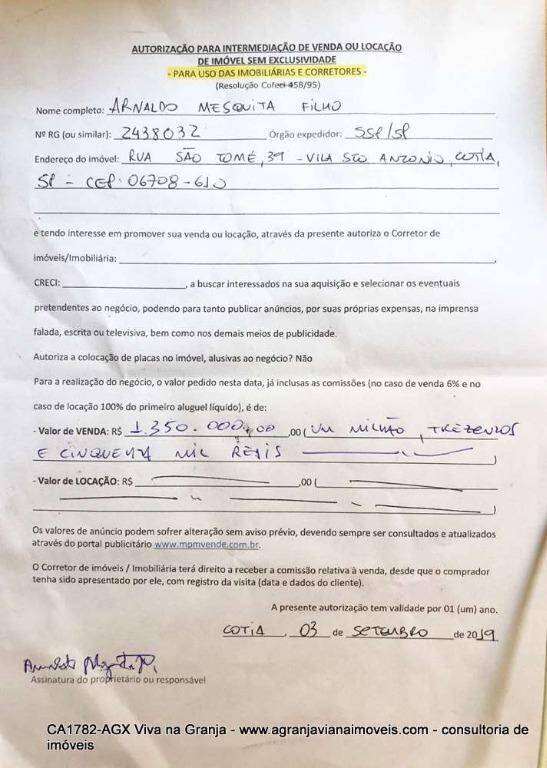 AUTORIZAÇÃO PARA INTERMEDIAÇÃO DE VENDA OU LOCAÇÃO
DE IMÓVEL SEM EXCLUSIVIDADE
- PARA USO DAS IMOBILIÁRIAS E CORRETORES -
(Resolução Cofeci 458/95)
Nome completo: ARNALDO MESQUITA FILHO
Nº RG (ou similar): 2438032 Órgão expedidor: SSP/SP
Endereço do imóvel: RUA SÃO TOMÉ, 39 - VILA STO ANTONIO, COTIA,
SP - CEP: 06708-610
e tendo interesse em promover sua venda ou locação, através da presente autoriza o Corretor de
imóveis/Imobiliária: ,
CRECI: , a buscar interessados na sua aquisição e selecionar os eventuais
pretendentes ao negócio, podendo para tanto publicar anúncios, por suas próprias expensas, na imprensa
falada, escrita ou televisiva, bem como nos demais meios de publicidade.
Autoriza a colocação de placas no imóvel, alusivas ao negócio? Não
Para a realização do negócio, o valor pedido nesta data, já inclusas as comissões (no caso de venda 6% e no
caso de locação 100% do primeiro aluguel líquido), é de:
- Valor de VENDA: R$ 1.350.000,00 ,00 ( UM MILHÃO, TREZENTOS
E CINQUENTA MIL REAIS )
- Valor de LOCAÇÃO: R$ ,00 (
)
Os valores de anúncio podem sofrer alteração sem aviso prévio, devendo sempre ser consultados e atualizados
através do portal publicitário www.mpmvende.com.br.
O Corretor de imóveis / Imobiliária terá direito a receber a comissão relativa à venda, desde que o comprador
tenha sido apresentado por ele, com registro da visita (data e dados do cliente).
A presente autorização tem validade por 01 (um) ano.
COTIA, 03 de SETEMBRO de 2019
Assinatura do proprietário ou responsável
CA1782-AGX Viva na Granja - www.agranjavianaimoveis.com - consultoria de
imóveis